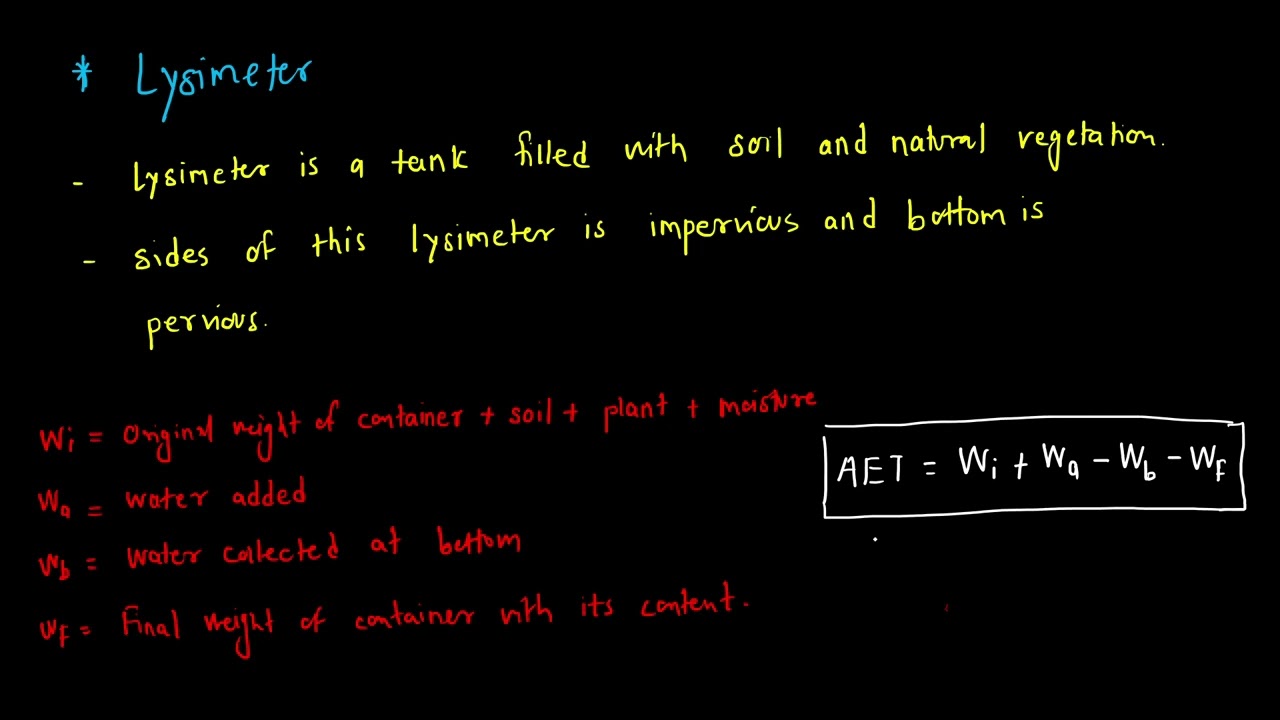 * Lysimeter
- Lysimeter is a tank filled with soil and natural vegetation.
- sides of this lysimeter is impervious and bottom is
pervious.
Wi = Original weight of container + soil + plant + moisture
Wa = water added
Wb = Water collected at bottom
WF = Final weight of container with its content.
AET = Wi + Wa - Wb - WF